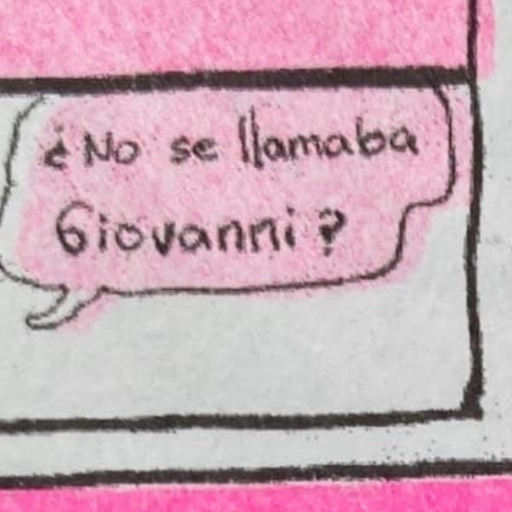 ¿No se llamaba
Giovanni?